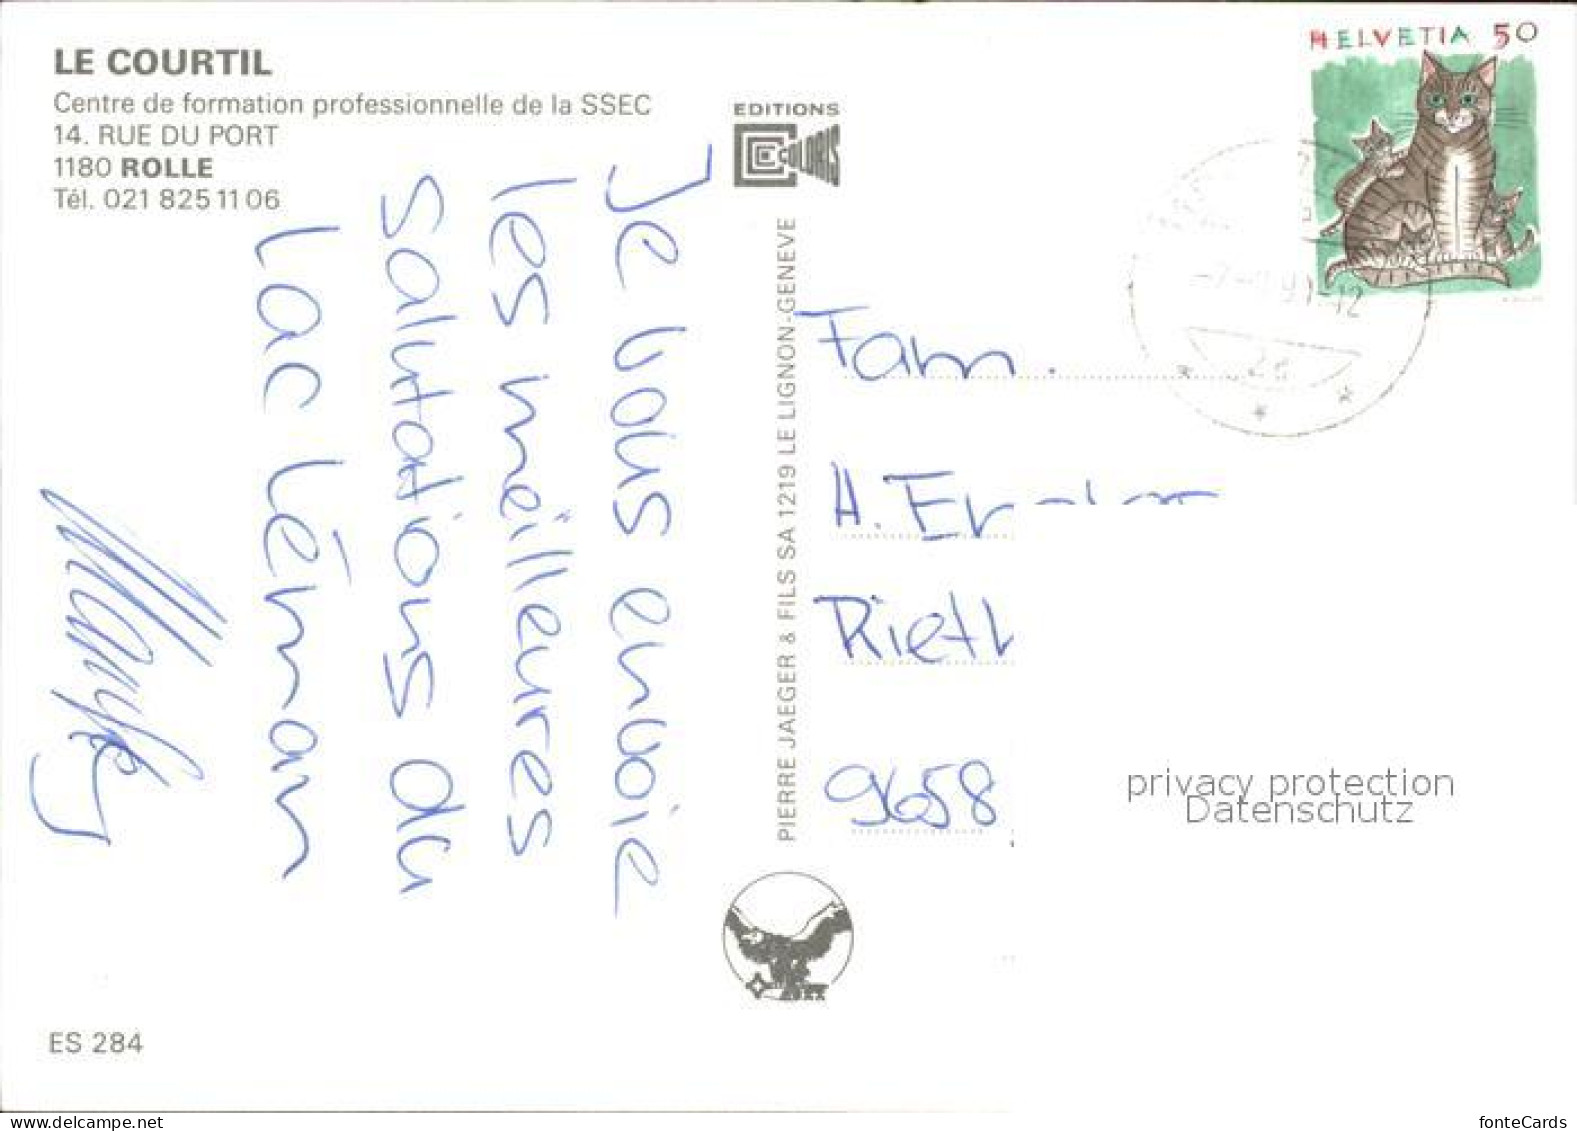 LE COURTIL
Centre de formation professionnelle de la SSEC
14. RUE DU PORT
1180 ROLLE
Tél. 021 825 11 06
Je vous envoie
les meilleures
salutations du
Lac Léman
EDITIONS
COLORIS
PIERRE JAEGER & FILS SA 1219 LE LIGNON-GENEVE
HELVETIA 50
Fam.
H.
9658
privacy protection
Datenschutz
ES 284
www.delcampe.net
fonteCards